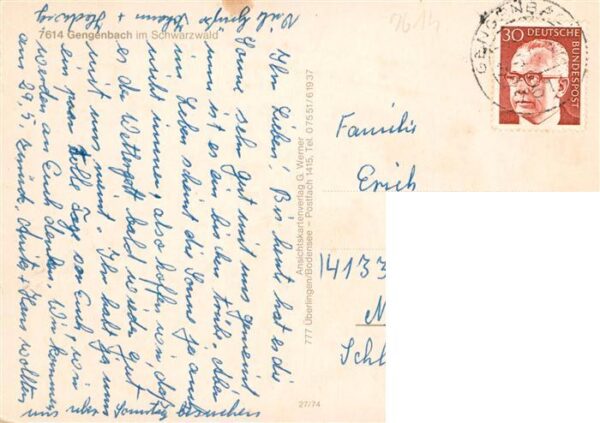 7614 Gengenbach im Schwarzwald
Ihr Lieben! Bis heut hat es die
Sonne sehr gut mit uns gemeint
nun ist es ein bischen trüb. Aber
im Leben scheint die Sonne ja auch
nicht immer, also hoffen wir, daß
es der Wettergott bald wieder gut
mit uns meint. Ihr habt ja uns
ein paar tolle Tage von Euch, wir
werden an Euch denken. Wir kommen
am 29.5. zurück, + Hans wollten
uns Samstag besuchen
Viele Grüße Johann + Hedwig
Ansichtskartenverlag G. Werner
777 Überlingen/Bodensee – Postfach 1415, Tel. 07551/61937
27/74
7614
GENGENBACH
30 DEUTSCHE
BUNDESPOST
Familie
Erich
14133